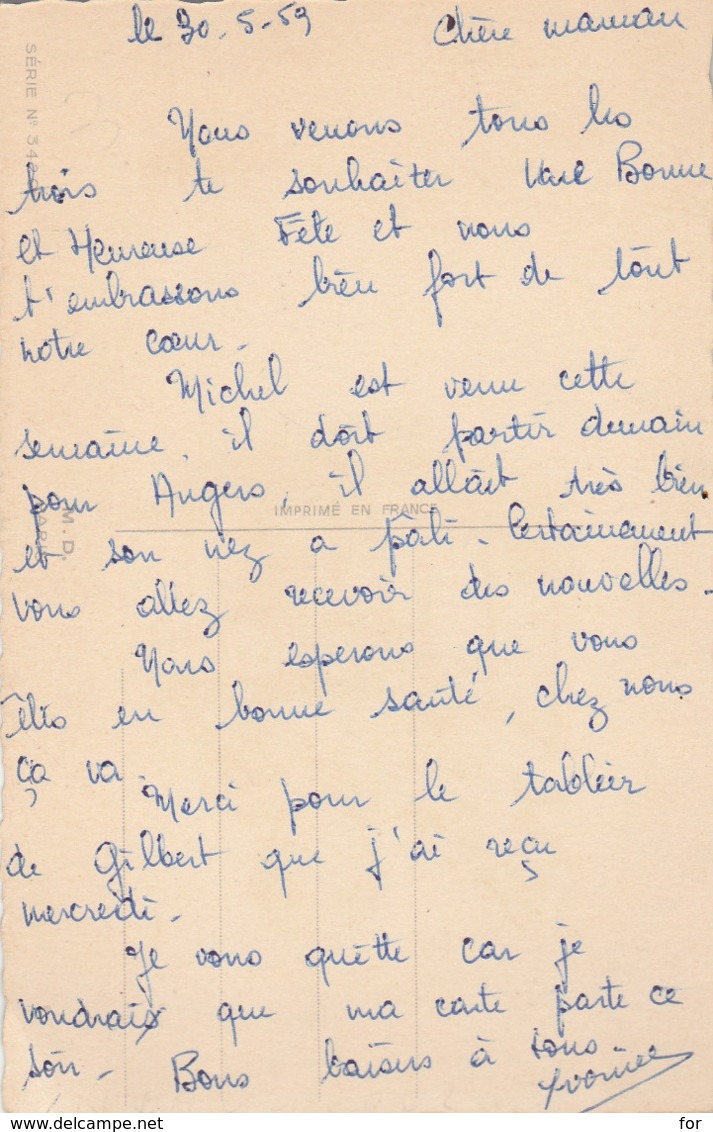 le 30-5-59 Chère maman
Nous venons tous les
trois te souhaiter Une Bonne
et Heureuse Fête et nous
t'embrassons bien fort de tout
notre cœur.
Michel est venu cette
semaine, il doit partir demain
pour Angers, il allait très bien
IMPRIMÉ EN FRANCE
et son nez a pâli. Certainement
vous allez recevoir des nouvelles.
Nous esperons que vous
êtes en bonne santé, chez nous
ça va
Merci pour le tablier
de Gilbert que j'ai reçu
mercredi.
Je vous quitte car je
voudrais que ma carte parte ce
soir. Bons baisers à tous.
Yvonne
SÉRIE N° 34
M.D.
PAR
for